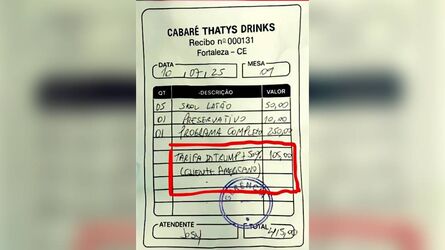 CABARÉ THATYS DRINKS
Recibo nº 000131
Fortaleza - CE
DATA MESA
10 / 07 / 25 09
QT. DESCRIÇÃO VALOR
05 SKOL LATÃO 50,00
01 PRESERVATIVO 10,00
01 PROGRAMA COMPLETO 250,00
TARIFA DO TRUMP + 50% 105,00
(CLIENTE AMERICANO)
ATENDENTE TOTAL
Josy 415,00